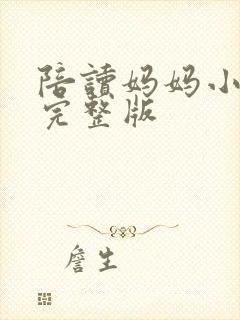 陪讀妈妈小
完整版
詹生